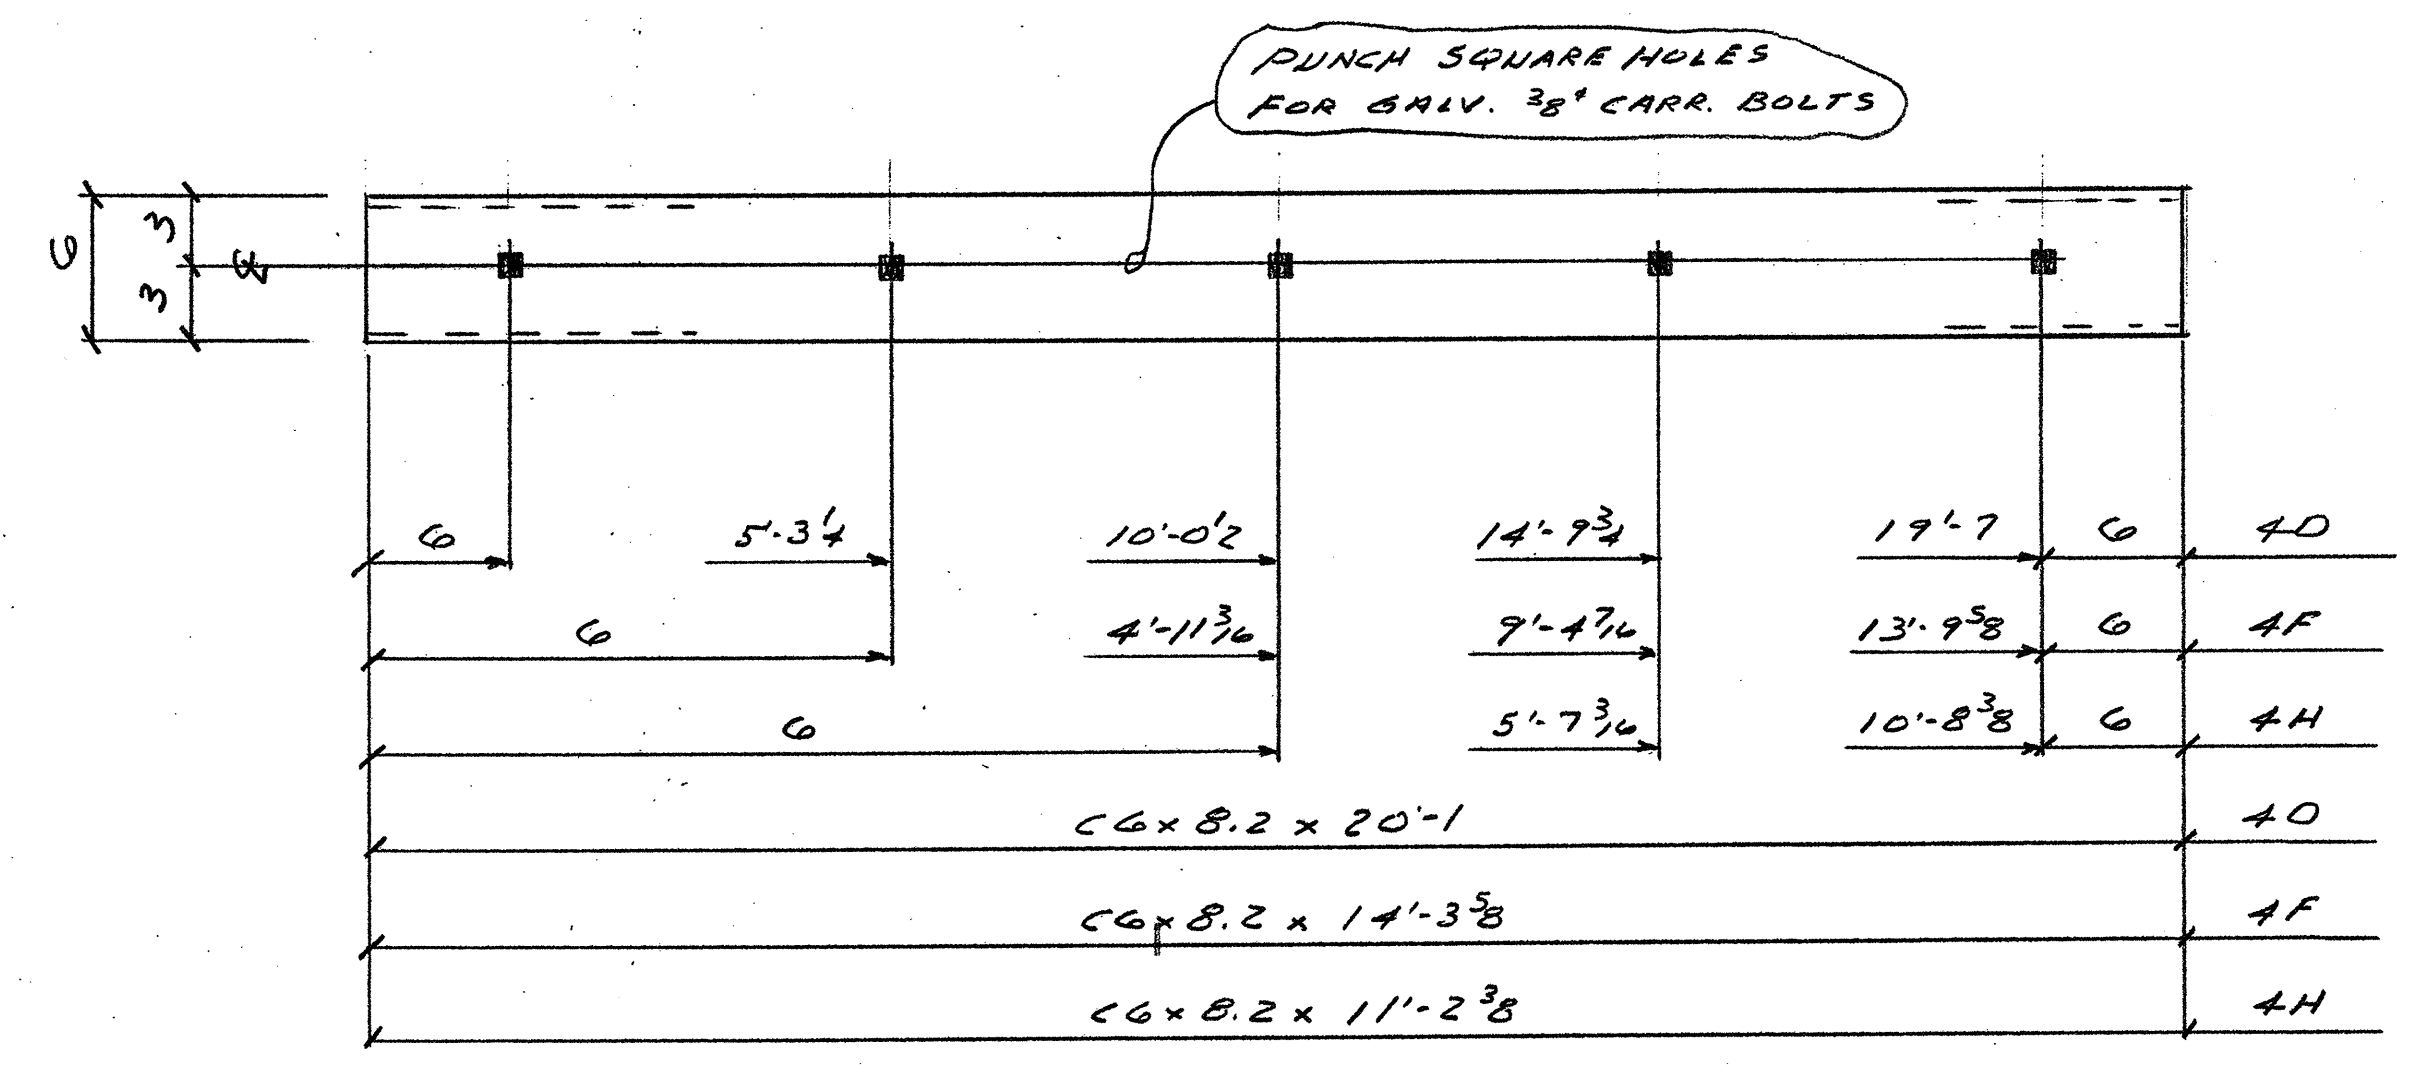 PUNCH SQUARE HOLES
FOR GALV. 3/8ᶲ CARR. BOLTS
6
3
3
℄
6 5'-3 1/4 10'-0 1/2 14'-9 3/4 19'-7 6 4D
6 4'-11 3/16 9'-4 7/16 13'-9 5/8 6 4F
6 5'-7 3/16 10'-8 3/8 6 4H
C6 x 8.2 x 20'-1 4D
C6 x 8.2 x 14'-3 5/8 4F
C6 x 8.2 x 11'-2 3/8 4H